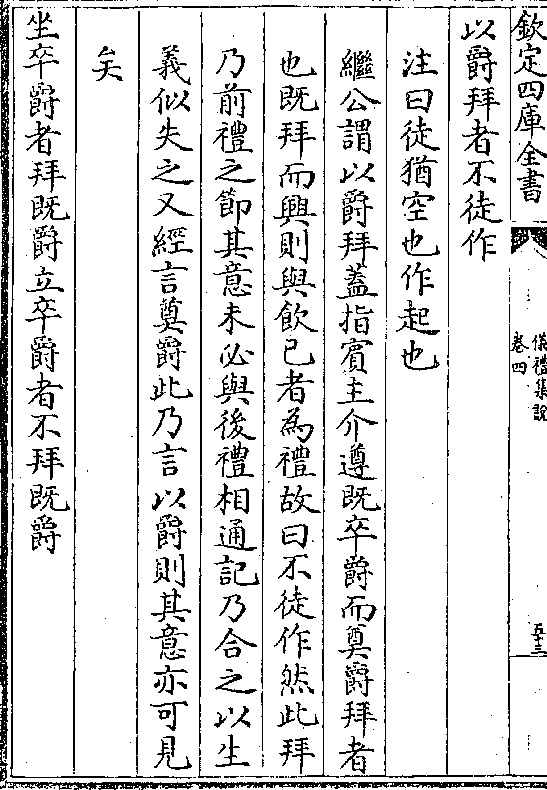 欽定四庫全書
儀禮集說
卷四
五十三
以爵拜者不徒作
注曰徒猶空也作起也
繼公謂以爵拜蓋指賓主介遵既卒爵而奠爵拜者
也既拜而興則與飲己者為禮故曰不徒作然此拜
乃前禮之節其意未必與後禮相通記乃合之以生
義似失之又經言奠爵此乃言以爵則其意亦可見
矣
坐卒爵者拜既爵立卒爵者不拜既爵